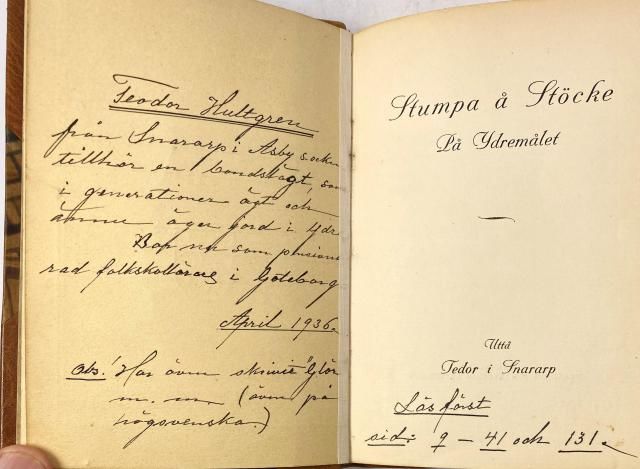 Teodor Hultgren
från Snararp i Asby socken
tillhör en bondslägt, som
i generationer ägt och
ännu äger jord i Ydre
Bor nu som pensione
rad folkskollärare i Göteborg
April 1936.
obs! Har även skrivit "Glör
m. m. (även på
högsvenska.)
Stumpa å Stöcke
På Ydremålet
Uttå
Tedor i Snararp
Läs först
sid: 9 – 41 och 131.